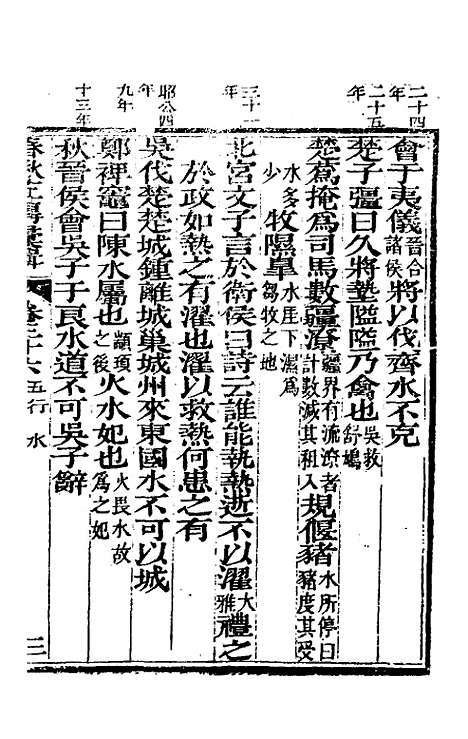 二十四年
會于夷儀晉合諸侯將以伐齊水不克
二十五年
楚子彊曰久將墊隘隘乃禽也吳救舒鳩
楚蒍掩為司馬數疆潦疆界有流潦者計數減其租入規偃豬水所停曰豬度其受
水多少牧隰臯水厓下濕為芻牧之地
三十一年
北宮文子言於衛侯曰詩云誰能執熱逝不以濯大雅禮之
於政如熱之有濯也濯以救熱何患之有
昭公四年
吳伐楚楚城鍾離城巢城州來東國水不可以城
九年
鄭禆竈曰陳水屬也顓頊之後火水妃也火畏水故為之妃
十三年
秋晉侯會吳子于良水道不可吳子辭
卷三十六 五行 水
三